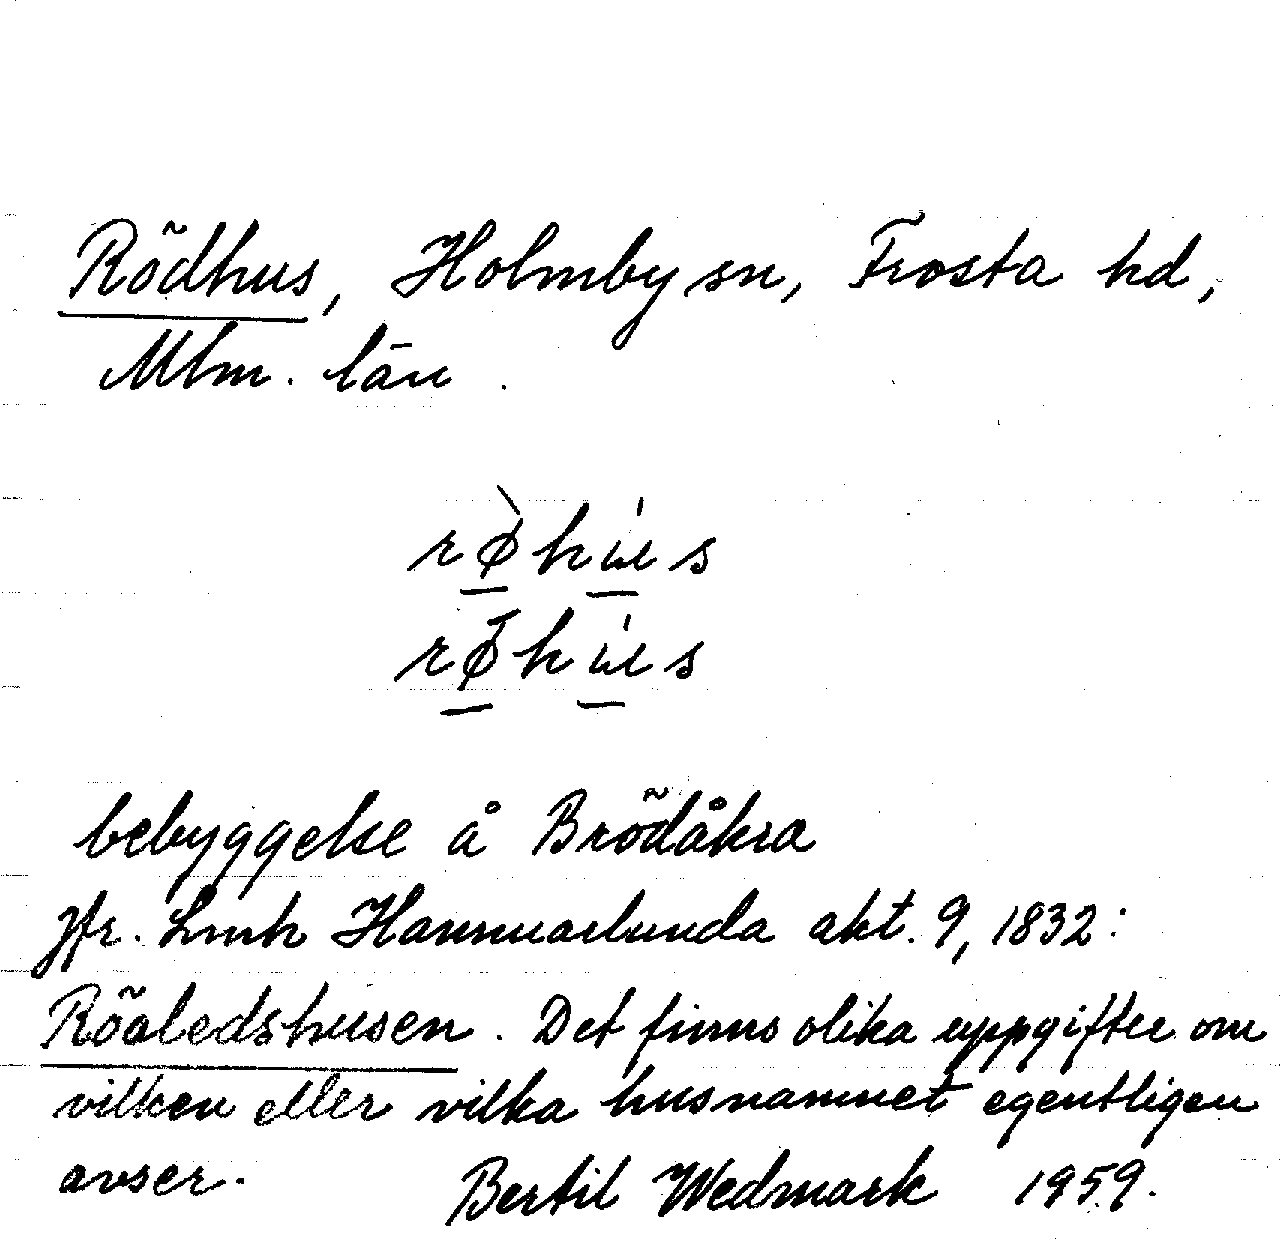 Rödhus, Holmby sn, Frosta hd,
Mlm. län.
rø̀hús
rø̄hús
bebyggelse å Brödåkra
Jfr. Lmh Hammarlunda akt. 9, 1832:
Röaledshusen. Det finns olika uppgifter om
vilken eller vilka husnamnet egentligen
avser. Bertil Wedmark 1959.